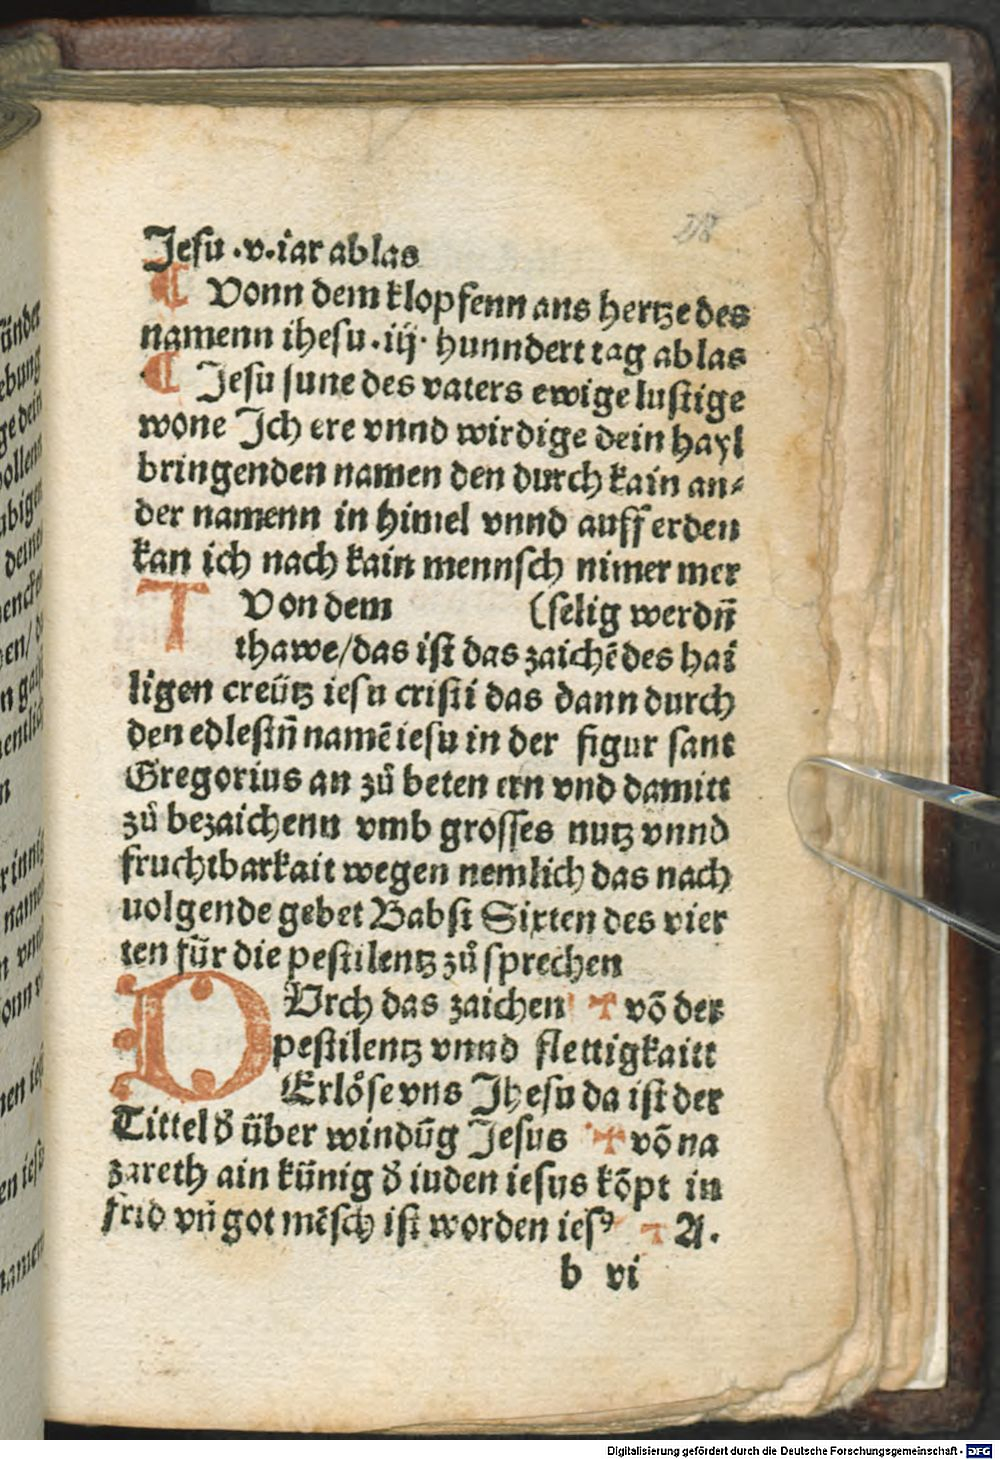 Jesu .v. iar ablas
¶ Vonn dem klopfenn ans hertze des
namenn ihesu .iij. hunndert tag ablas
¶ Jesu sune des vaters ewige lustige
wone Jch ere vnnd wirdige dein hayl
bringenden namen den durch kain an⸗
der namenn in himel vnnd auff erden
kan ich nach kain mennsch nimer mer
T Von dem (selig werdn̄
thawe/das ist das zaichē des hai
ligen creütz iesu cristi das dann durch
den edlestn̄ namē iesu in der figur sant
Gregorius an zů beten ern vnd damitt
zů bezaichenn vmb grosses nutz vnnd
fruchtbarkait wegen nemlich das nach
uolgende gebet Babst Sixten des vier
ten für die pestilentz zů sprechen
DVrch das zaichen ✝ vō der
pestilentz vnnd flettigkaitt
Erlöse vns Jhesu da ist der
Tittel d̄ über windūg Jesus ✝ vō na
zareth ain künig d̄ iuden iesus kōpt in
frid vn̄ got mēsch ist worden iesꝰ ✝ A.
b vi
Digitalisierung gefördert durch die Deutsche Forschungsgemeinschaft - DFG